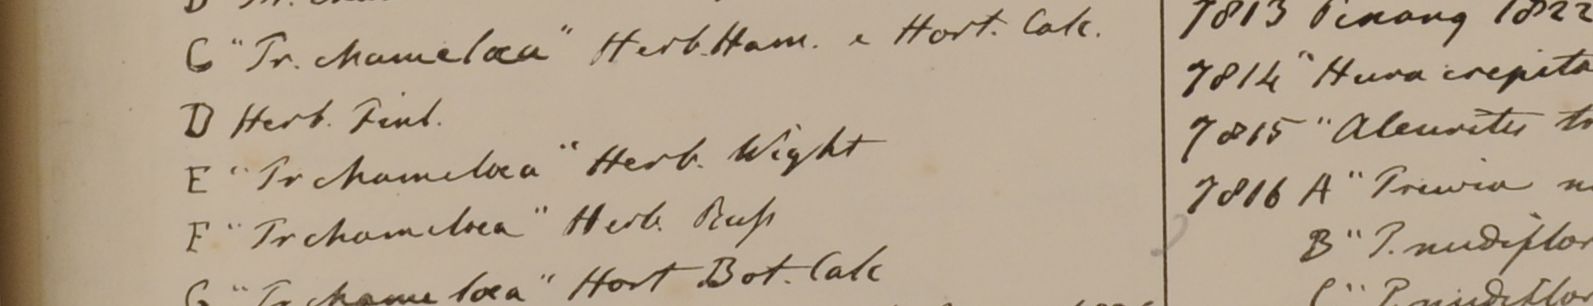 C "Tr. chamelaea" Herb. Ham. e Hort. Calc.
D Herb. Finl.
E "Tr chamelaea" Herb. Wight
F "Tr chamelaea" Herb. Russ
G "Tr chamelaea" Hort Bot. Calc
7813 Penang 1822
7814 "Hura crepita
7815 "Aleurites tr
7816 A "Trewia n
B "T. nudiflor
C "T. nudiflor